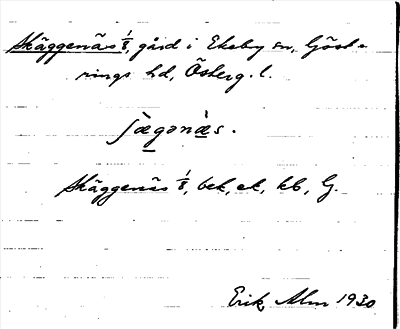 Skäggenäs 1/8, gård i Ekeby sn, Göst-
rings hd, Österg. l.
ʃægənæs.
Skäggenäs 1/8, bek, ek, kb, G.
Erik Alm 1930